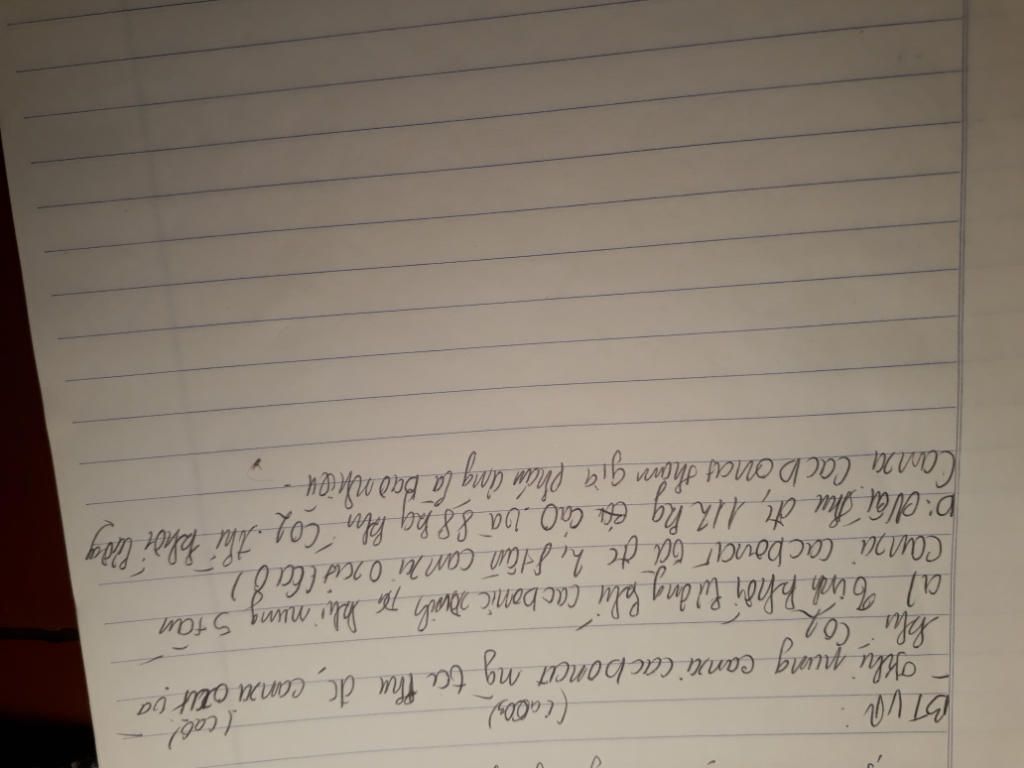 BTVN:
(CaCO3) (CaO)
- Khi nung canxi cacbonat ng ta thu đc canxi oxit và
khí CO2
a) Tính khối lượng khí cacbonic sinh ra khi nung 5 tấn
canxi cacbonat và đc 2,8 tấn canxi oxit (CaO)
b: Nếu thu đc 112 kg CaO và 88 kg khí CO2 thì khối lượng
Canxi cacbonat tham gia phản ứng là bao nhiêu